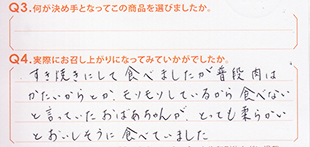 Q3.何が決め手となってこの商品を選びましたか。
Q4.実際にお召し上がりになってみていかがでしたか。
すき焼きにして食べましたが普段肉は
かたいからとか、モソモソしているから食べない
と言っていたおばあちゃんが、とっても柔らかい
とおいしそうに食べていました